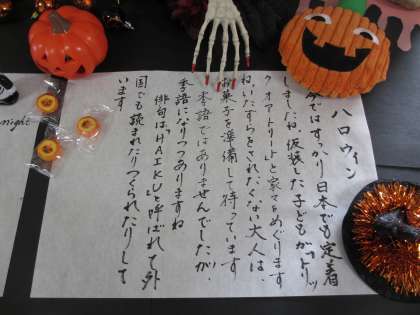 ハロウィン
今ではすっかり日本でも定着
しましたね。仮装した子どもが「トリッ
クオアトリート」と家々をめぐります
ね。いたずらをされたくない大人は、
お菓子を準備して待っています
季語ではありませんでしたが、
季語になりつつありますね
俳句は「HAIKU」と呼ばれて外
国でも読まれたりつくられたりして
います
night